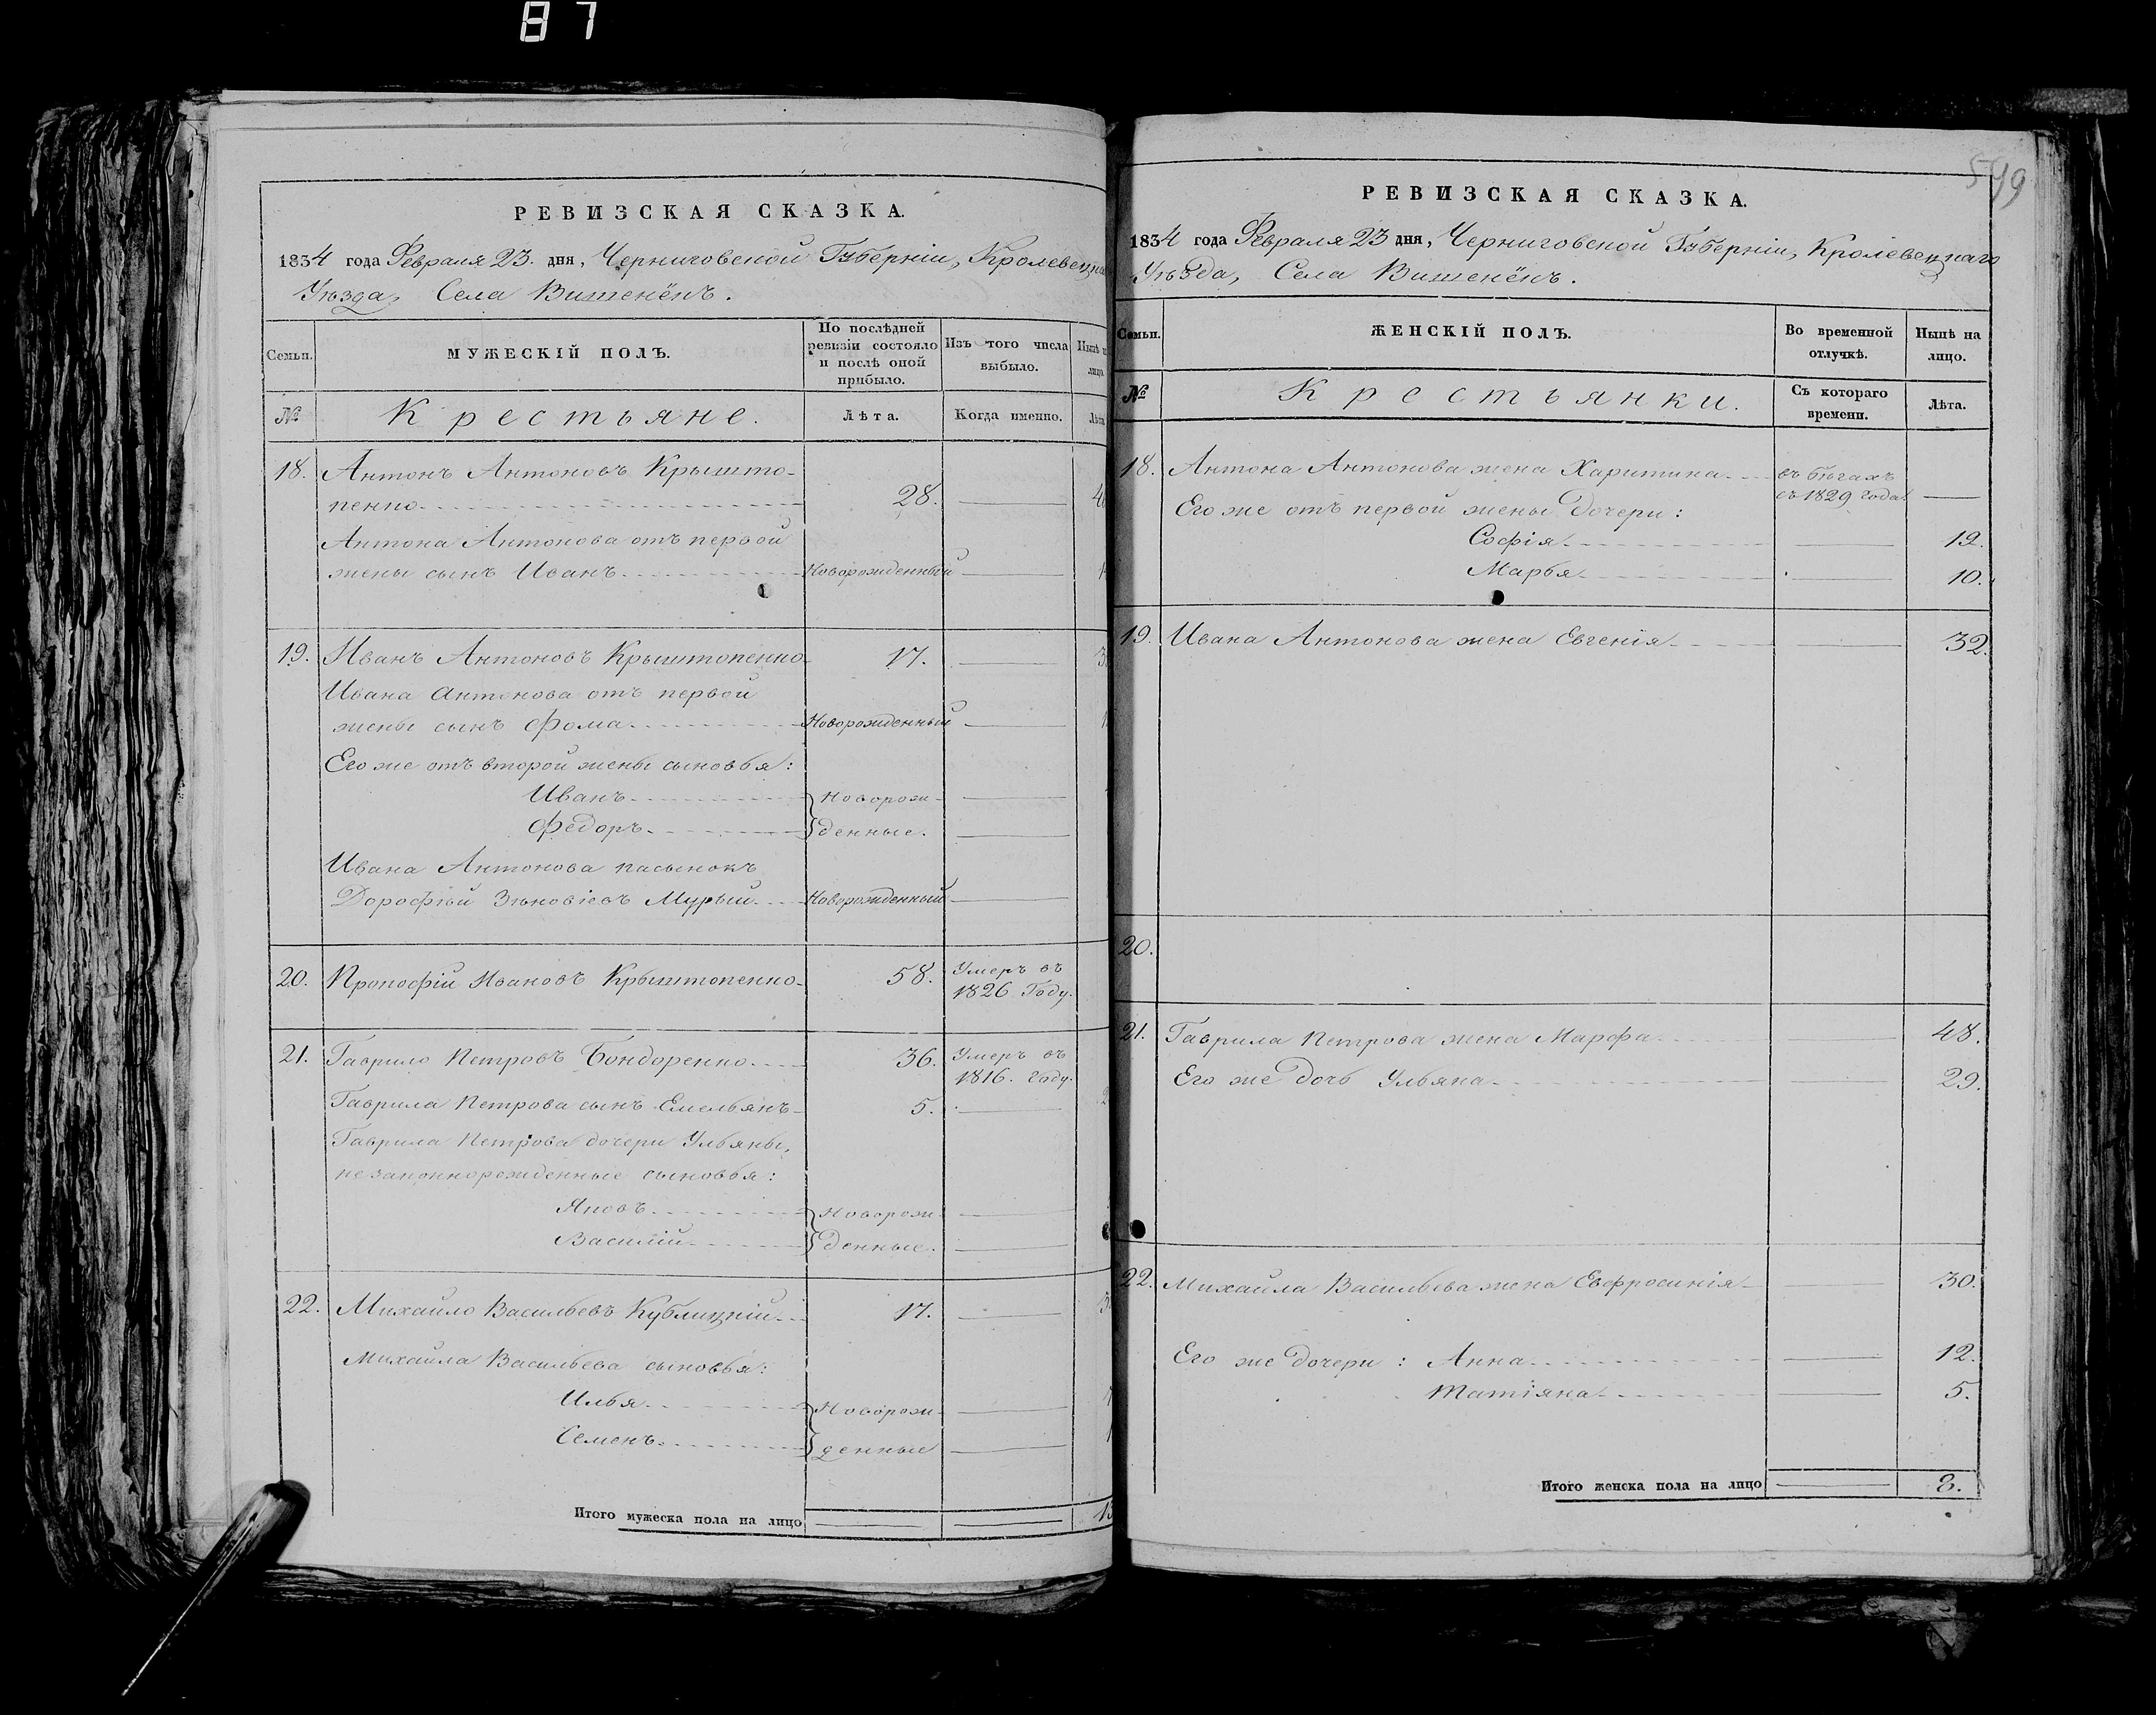 87
РЕВИЗСКАЯ СКАЗКА.
1834 года Февраля 23. дня, Черниговской Губерніи,
Уѣзда, Села Вишенёкъ.
Семьи.
МУЖЕСКІЙ ПОЛЪ.
По послѣдней ревизіи состояло и послѣ оной прибыло.
Изъ того числа выбыло.
№
Крестьяне.
Лѣта.
Когда именно.
18. Антонъ Антоновъ Крышто-
пенко 28.
Антона Антонова отъ первой
жены сынъ Иванъ Новорожденный
19. Иванъ Антоновъ Крыштопенко 17.
Ивана Антонова отъ первой
жены сынъ Фома Новорожденный
Его же отъ второй жены сыновья:
Иванъ Новорож-
Федоръ денные.
Ивана Антонова пасынокъ
Дорофѣй Зѣновіевъ Мурый Новорожденный
20. Прокофій Ивановъ Крыштопенко 58. Умеръ въ
1826 Году.
21. Гаврило Петровъ Бондоренко 36. Умеръ въ
1816. Году.
Гаврила Петрова сынъ Емельянъ 5.
Гаврила Петрова дочери Ульяны,
незаконнорожденные сыновья:
Яковъ Новорож-
Василій денные.
22. Михайло Васильевъ Кублицкій 17.
Михайла Васильева сыновья:
Илья Новорож-
Семенъ денные
Итого мужеска пола на лицо 13
599
РЕВИЗСКАЯ СКАЗКА.
1834 года Февраля 23 дня, Черниговской Губерніи, Кролевецкаго
Уѣзда, Села Вишенёкъ.
Семьи.
ЖЕНСКІЙ ПОЛЪ.
Во временной отлучкѣ.
Нынѣ на лицо.
№
Крестьянки.
Съ котораго времени.
Лѣта.
18. Антона Антонова жена Харитина въ бѣгахъ
съ 1829 года
Его же отъ первой жены дочери:
Софія 12.
Марья 10.
19. Ивана Антонова жена Евгенія 32.
20.
21. Гаврила Петрова жена Марфа 48.
Его же дочь Ульяна 29.
22. Михайла Васильева жена Евфросинія 30.
Его же дочери: Анна 12.
Татіяна 5.
Итого женска пола на лицо 8.